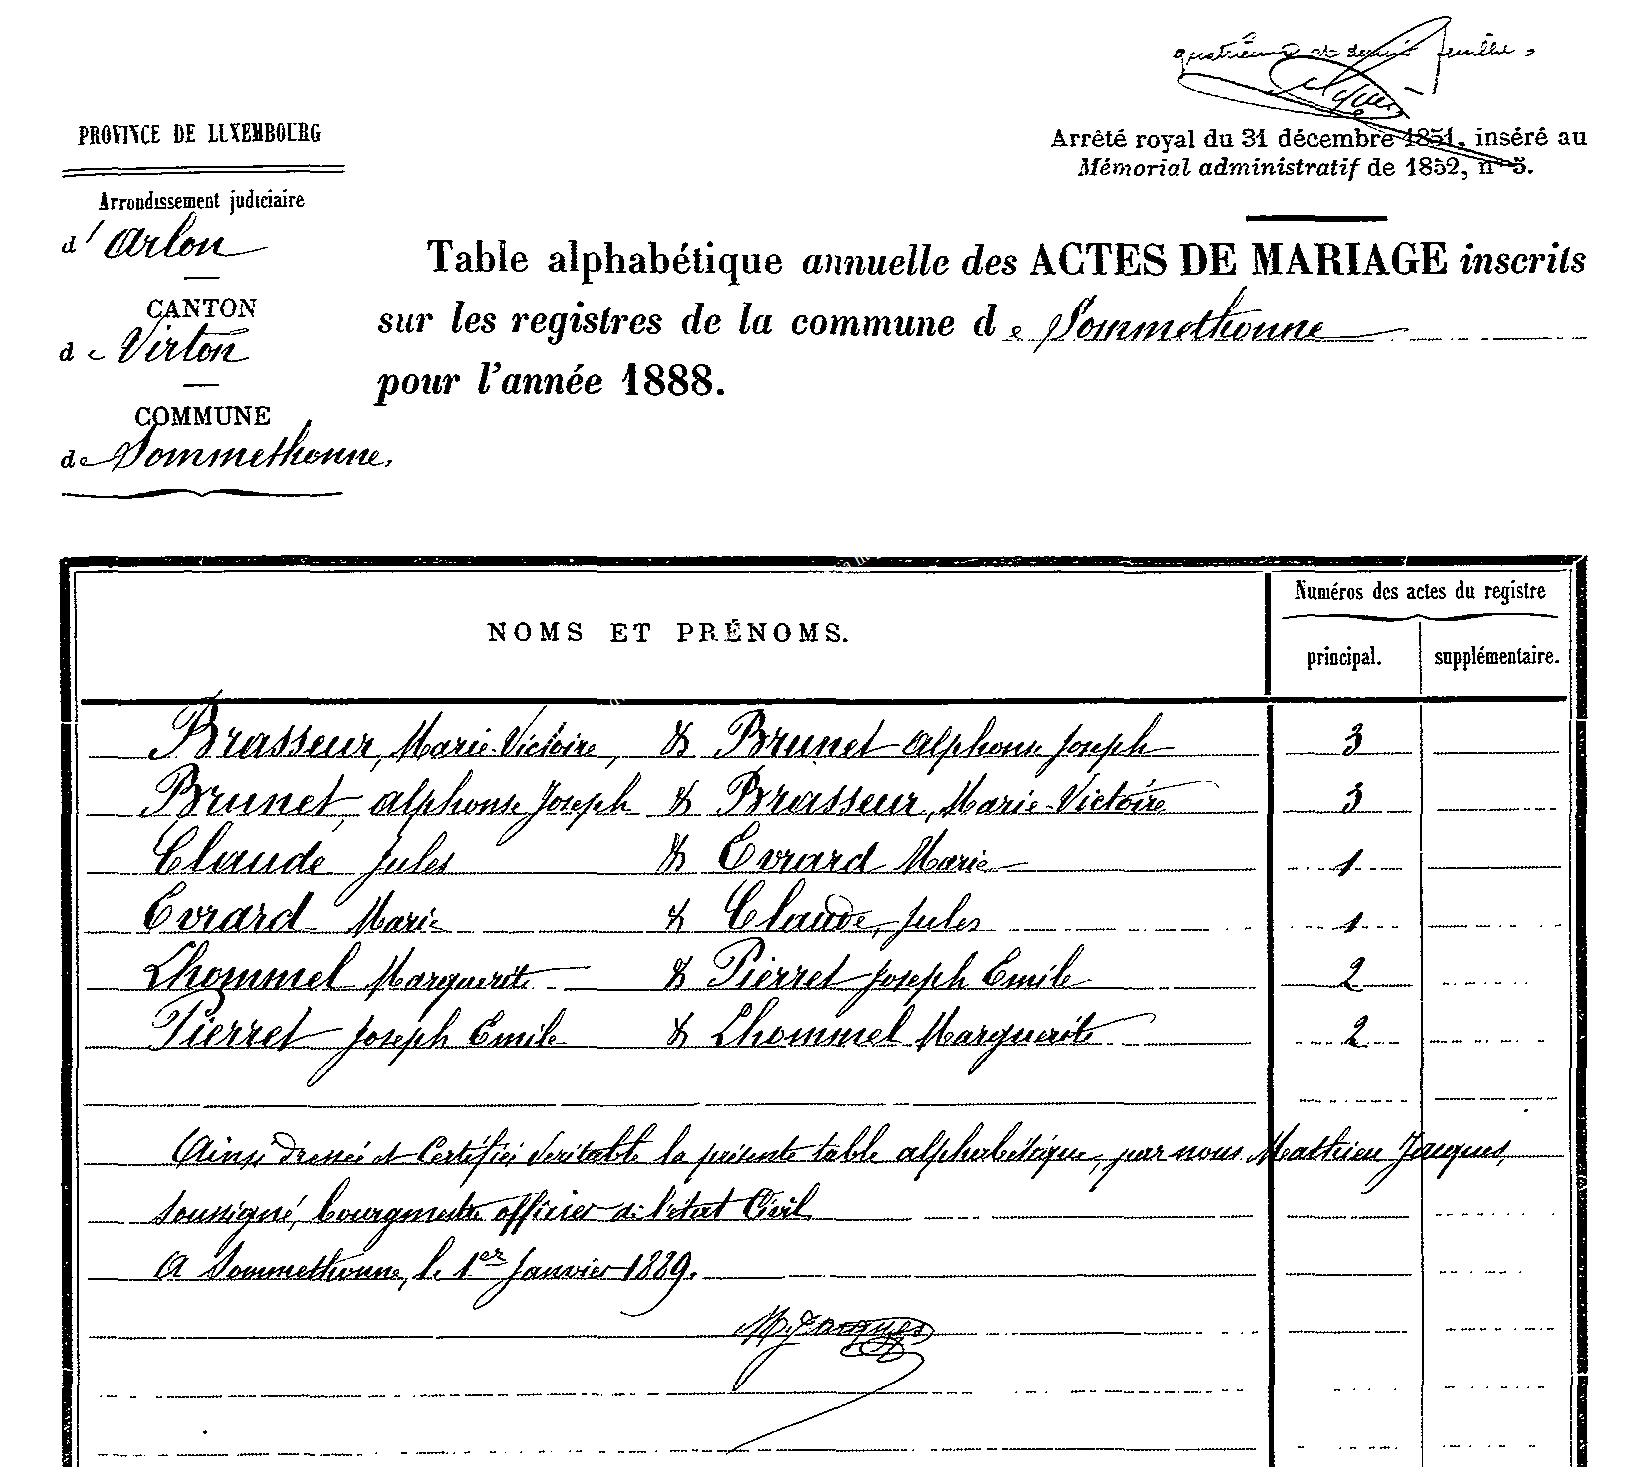 quatrième et dernier feuillet.
PROVINCE DE LUXEMBOURG
Arrêté royal du 31 décembre 1851, inséré au
Mémorial administratif de 1852, n° 5.
Arrondissement judiciaire
d' Arlon
CANTON
de Virton
COMMUNE
de Sommethonne.
Table alphabétique annuelle des ACTES DE MARIAGE inscrits
sur les registres de la commune de Sommethonne
pour l'année 1888.
NOMS ET PRÉNOMS.
Numéros des actes du registre
principal. supplémentaire.
Brasseur, Marie-Victoire, & Brunet alphonse Joseph 3
Brunet, alphonse Joseph & Brasseur, Marie-Victoire 3
Claude Jules & Evrard Marie 1
Evrard Marie & Claude, Jules 1
Lhommel Marguerite & Pierret Joseph Emile 2
Pierret Joseph Emile & Lhommel Marguerite 2
Ainsi dressée et Certifiée Véritable la présente table alphabétique, par nous Mathieu Jacques,
soussigné, bourgmestre officier de l'état Civil
A Sommethonne, le 1er Janvier 1889.
M. Jacques